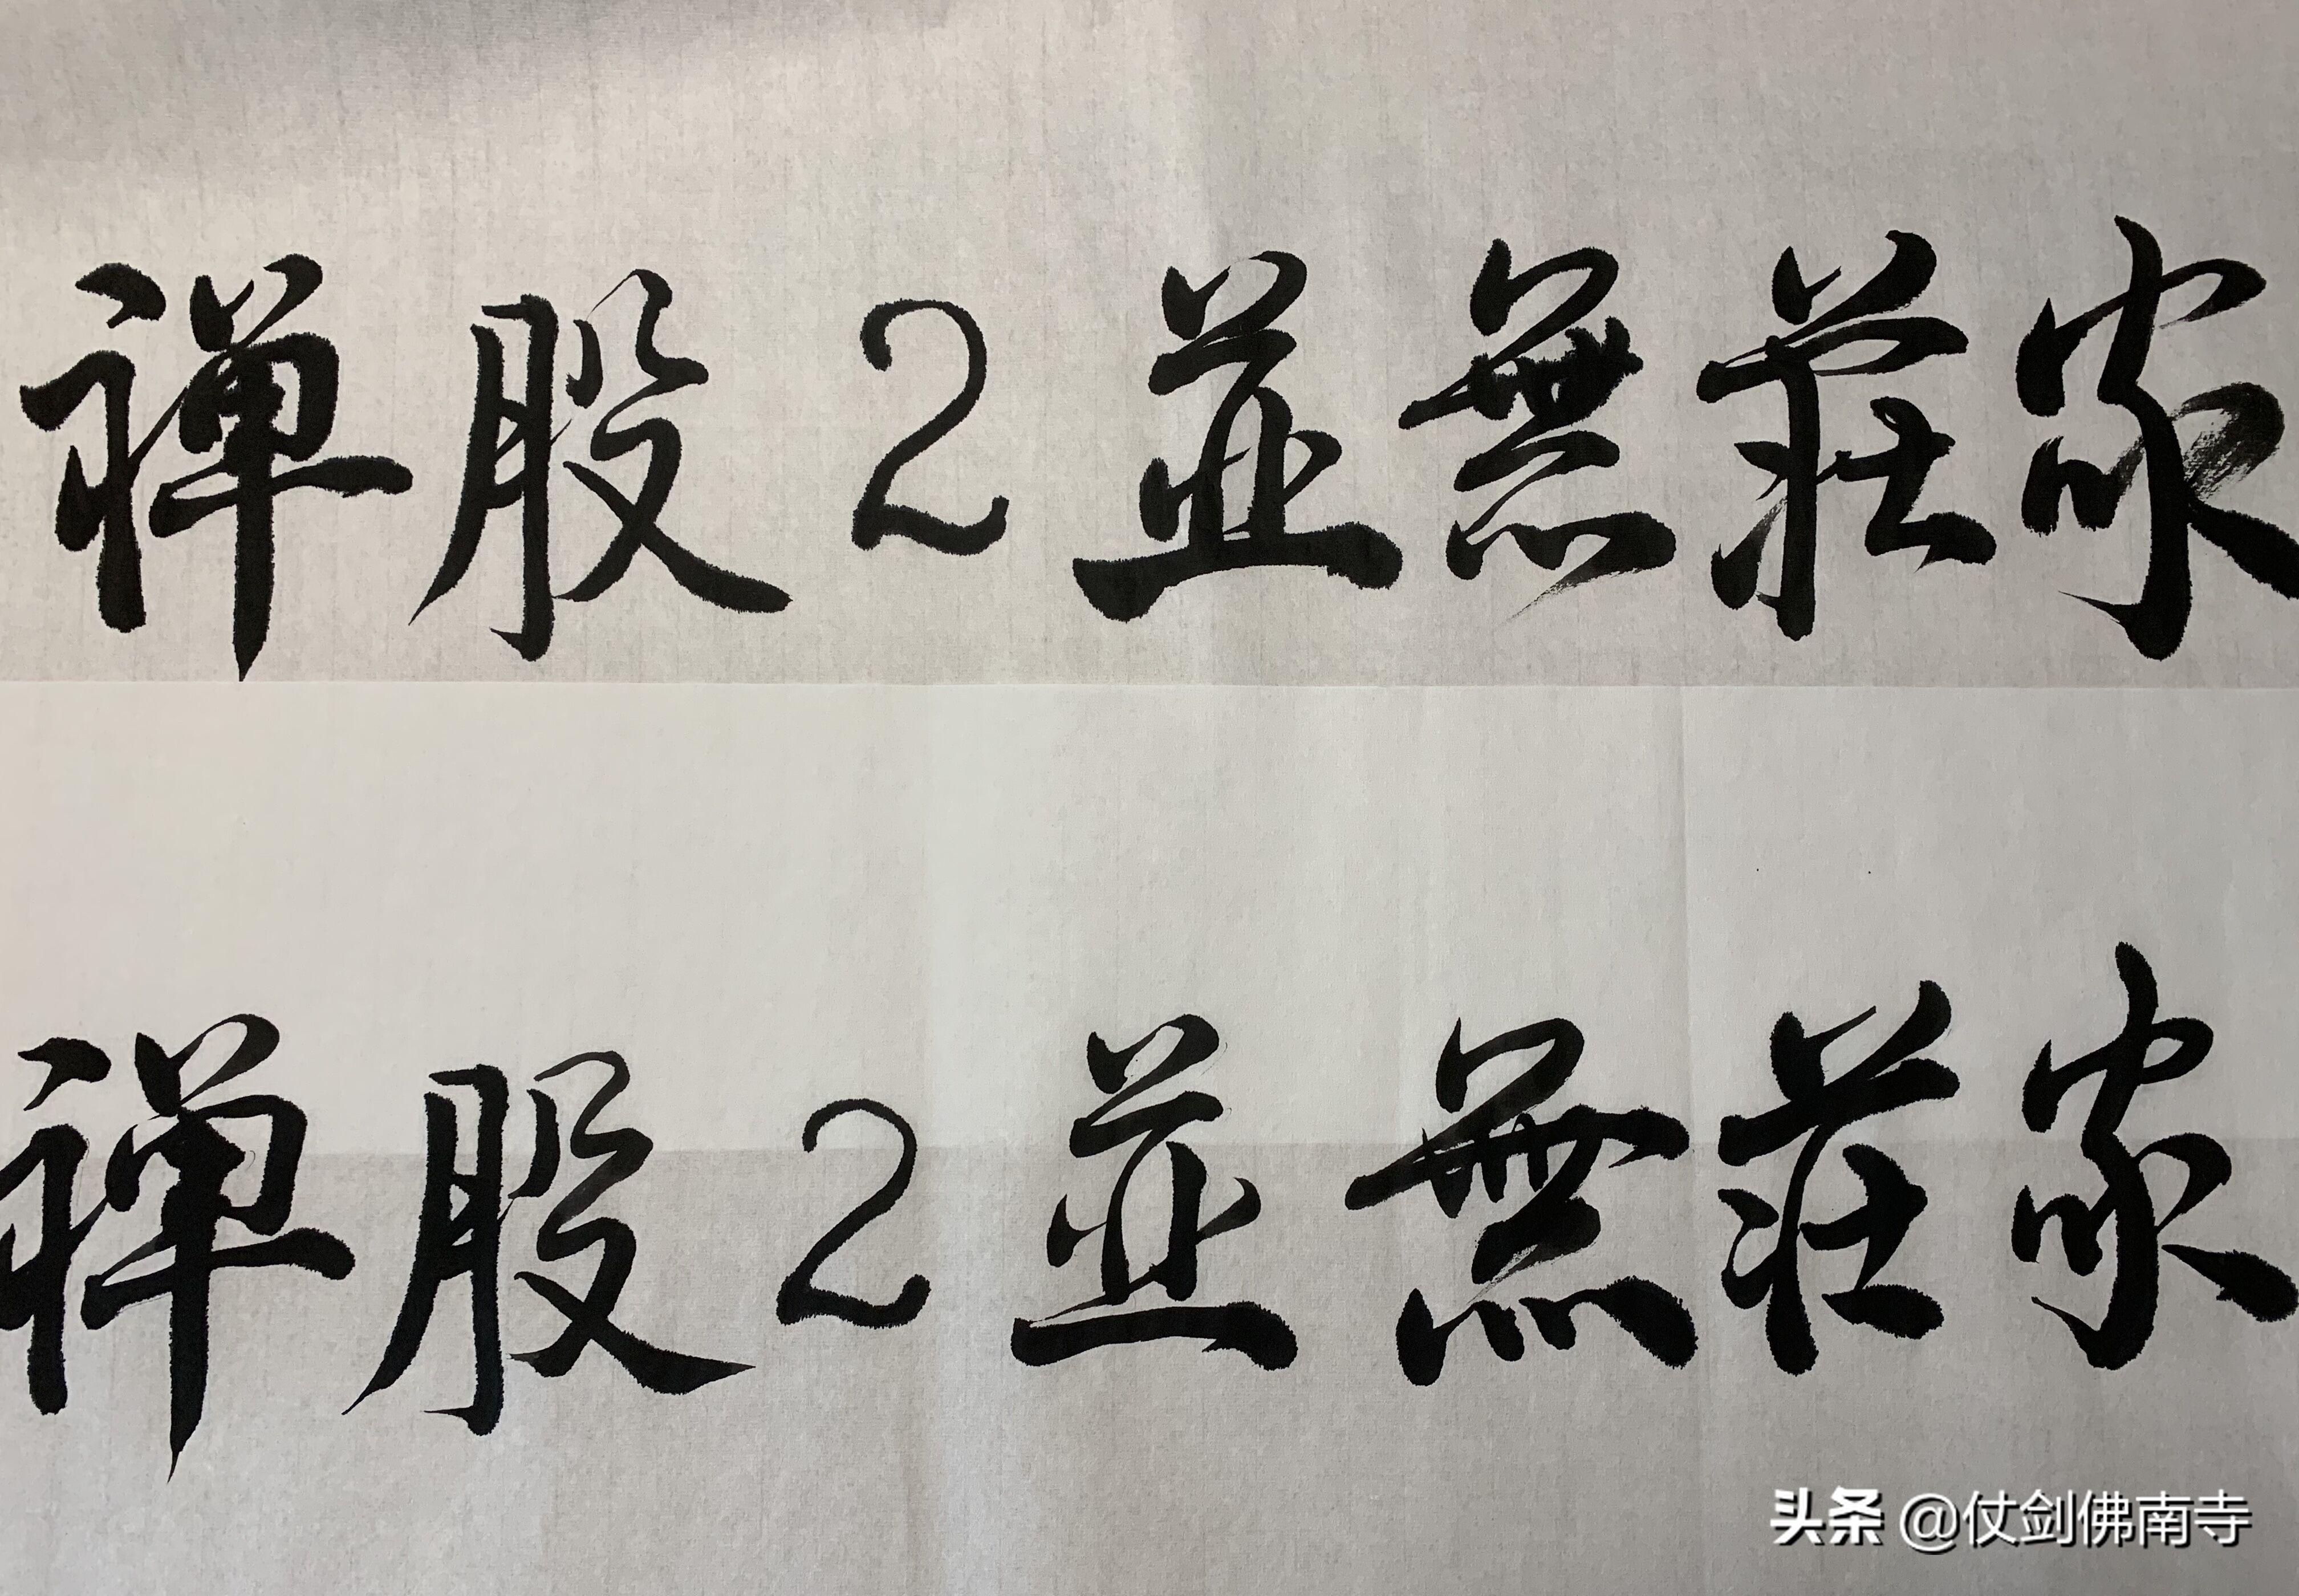 禅股2並無莊家
禅股2並無莊家
头条 @仗剑佛南寺